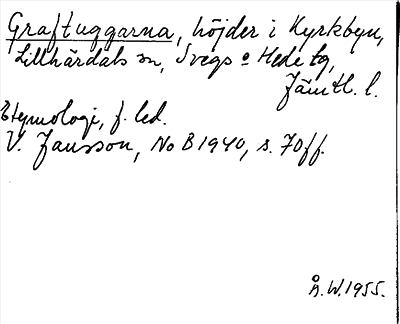 Graftuggarna, höjder i Kyrkbyn,
Lillhärdals sn, Svegs o Hede tg,
Jämtl. l.
Etymologi, f. led.
V. Jansson, NoB 1940, s. 70ff.
Å.W. 1955.